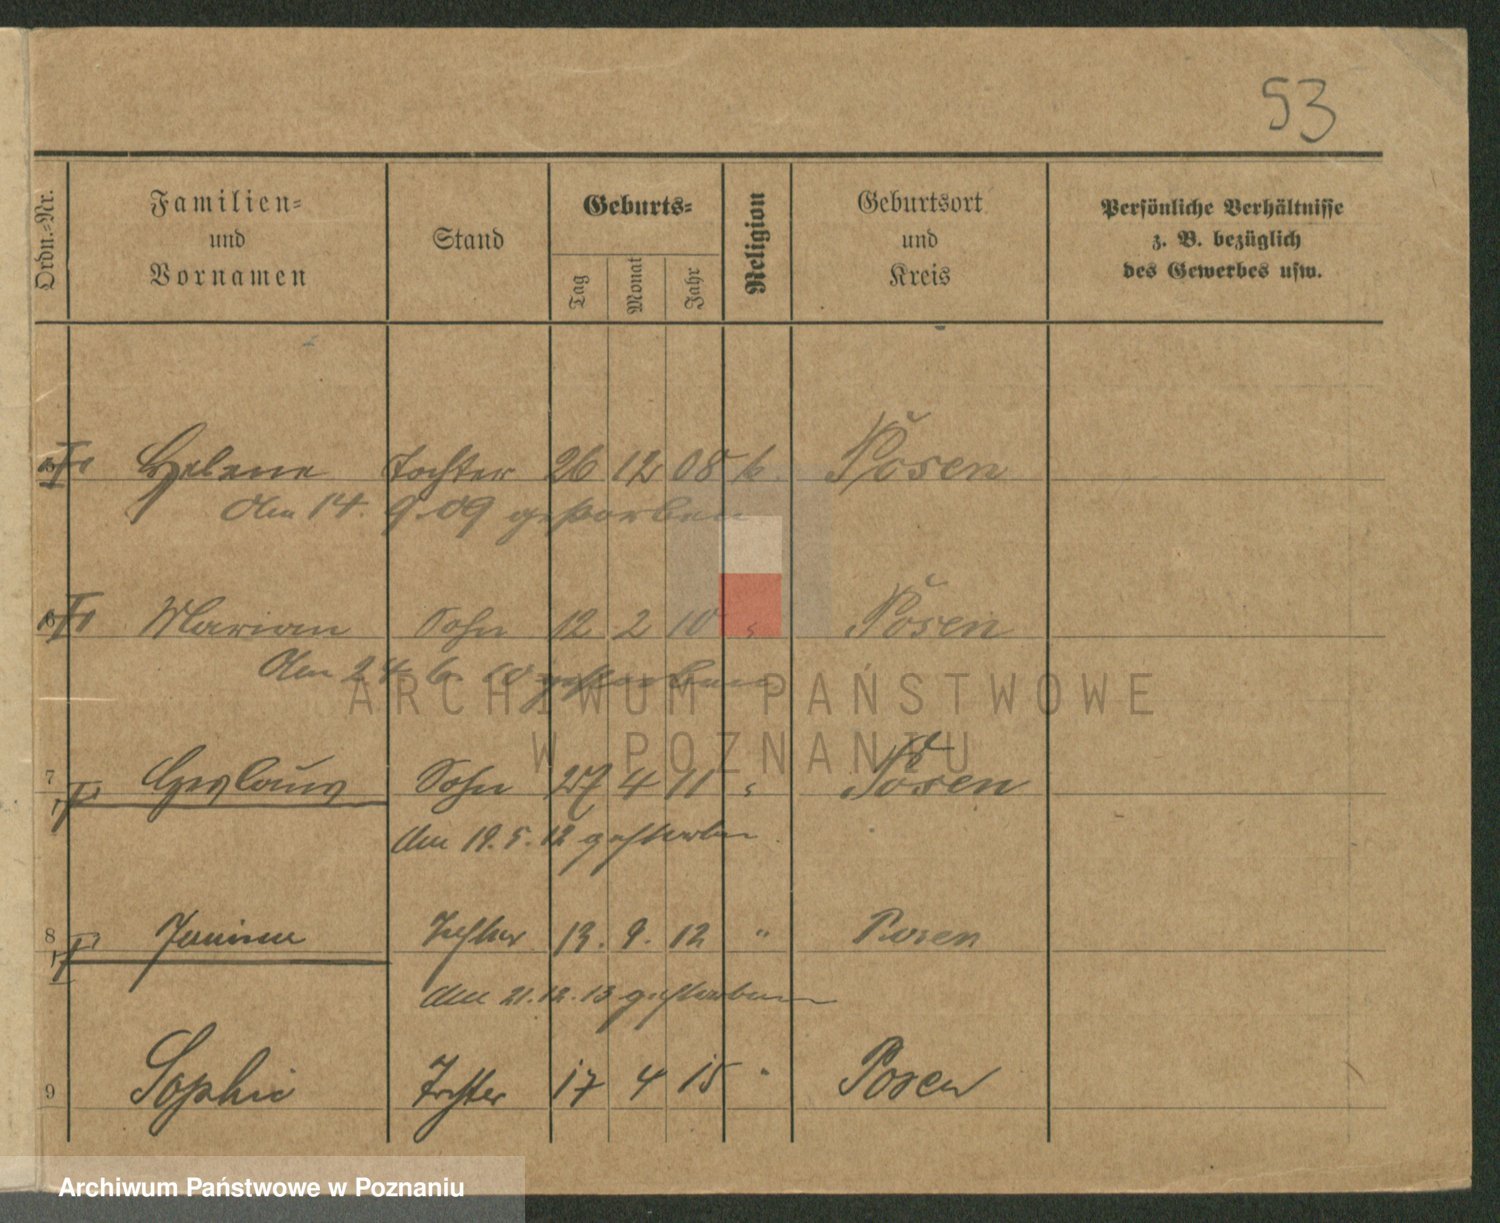 53
Ordn.-Nr.
Familien-
und
Vornamen
Stand
Geburts-
Tag
Monat
Jahr
Religion
Geburtsort
und
Kreis
Persönliche Verhältnisse
z. B. bezüglich
des Gewerbes usw.
Helene Tochter 26 12 08 k. Posen
den 14. 9. 09 gestorben
Marian Sohn 12 2 10 " Posen
den 24. 6. 10 gestorben
ARCHIWUM PAŃSTWOWE
W POZNANIU
7 Ceslaus Sohn 27 4 11 " Posen
den 19. 5. 12 gestorben
8 Janina Tochter 13. 9. 12 " Posen
den 21. 12. 13 gestorben
9 Sophie Tochter 17 4 15 " Posen
Archiwum Państwowe w Poznaniu